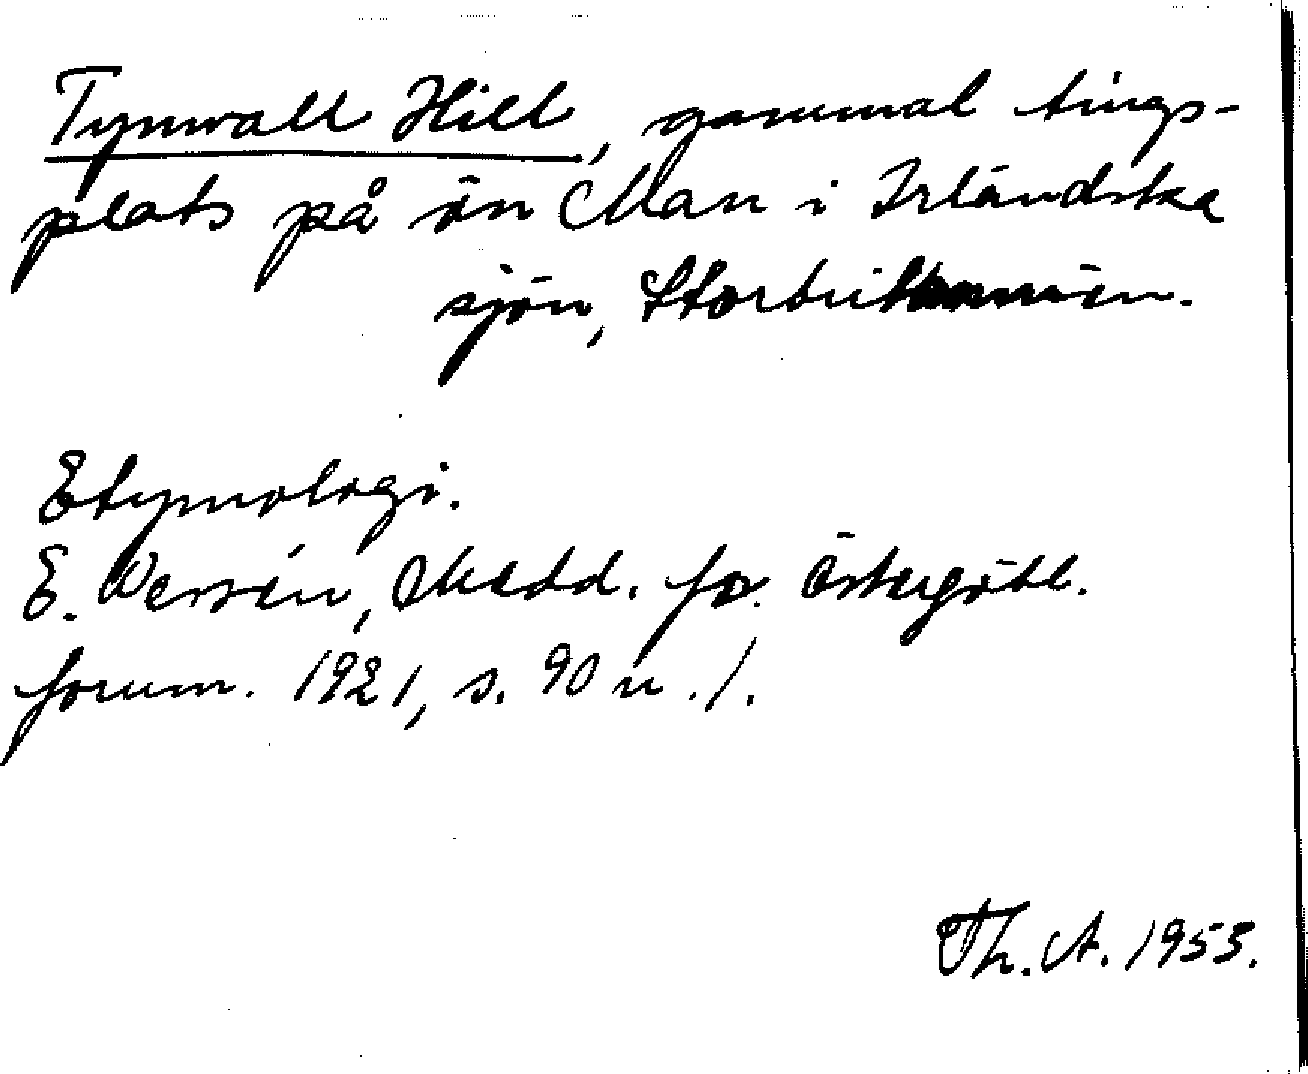 Tynwall Hill, gammal tings-
plats på ön Man i Irländska
sjön, Storbritannien.
Etymologi.
E. Wersén, Medd. fr. Östergötl.
fornm. 1921, s. 90 n. 1.
Th. A. 1953.